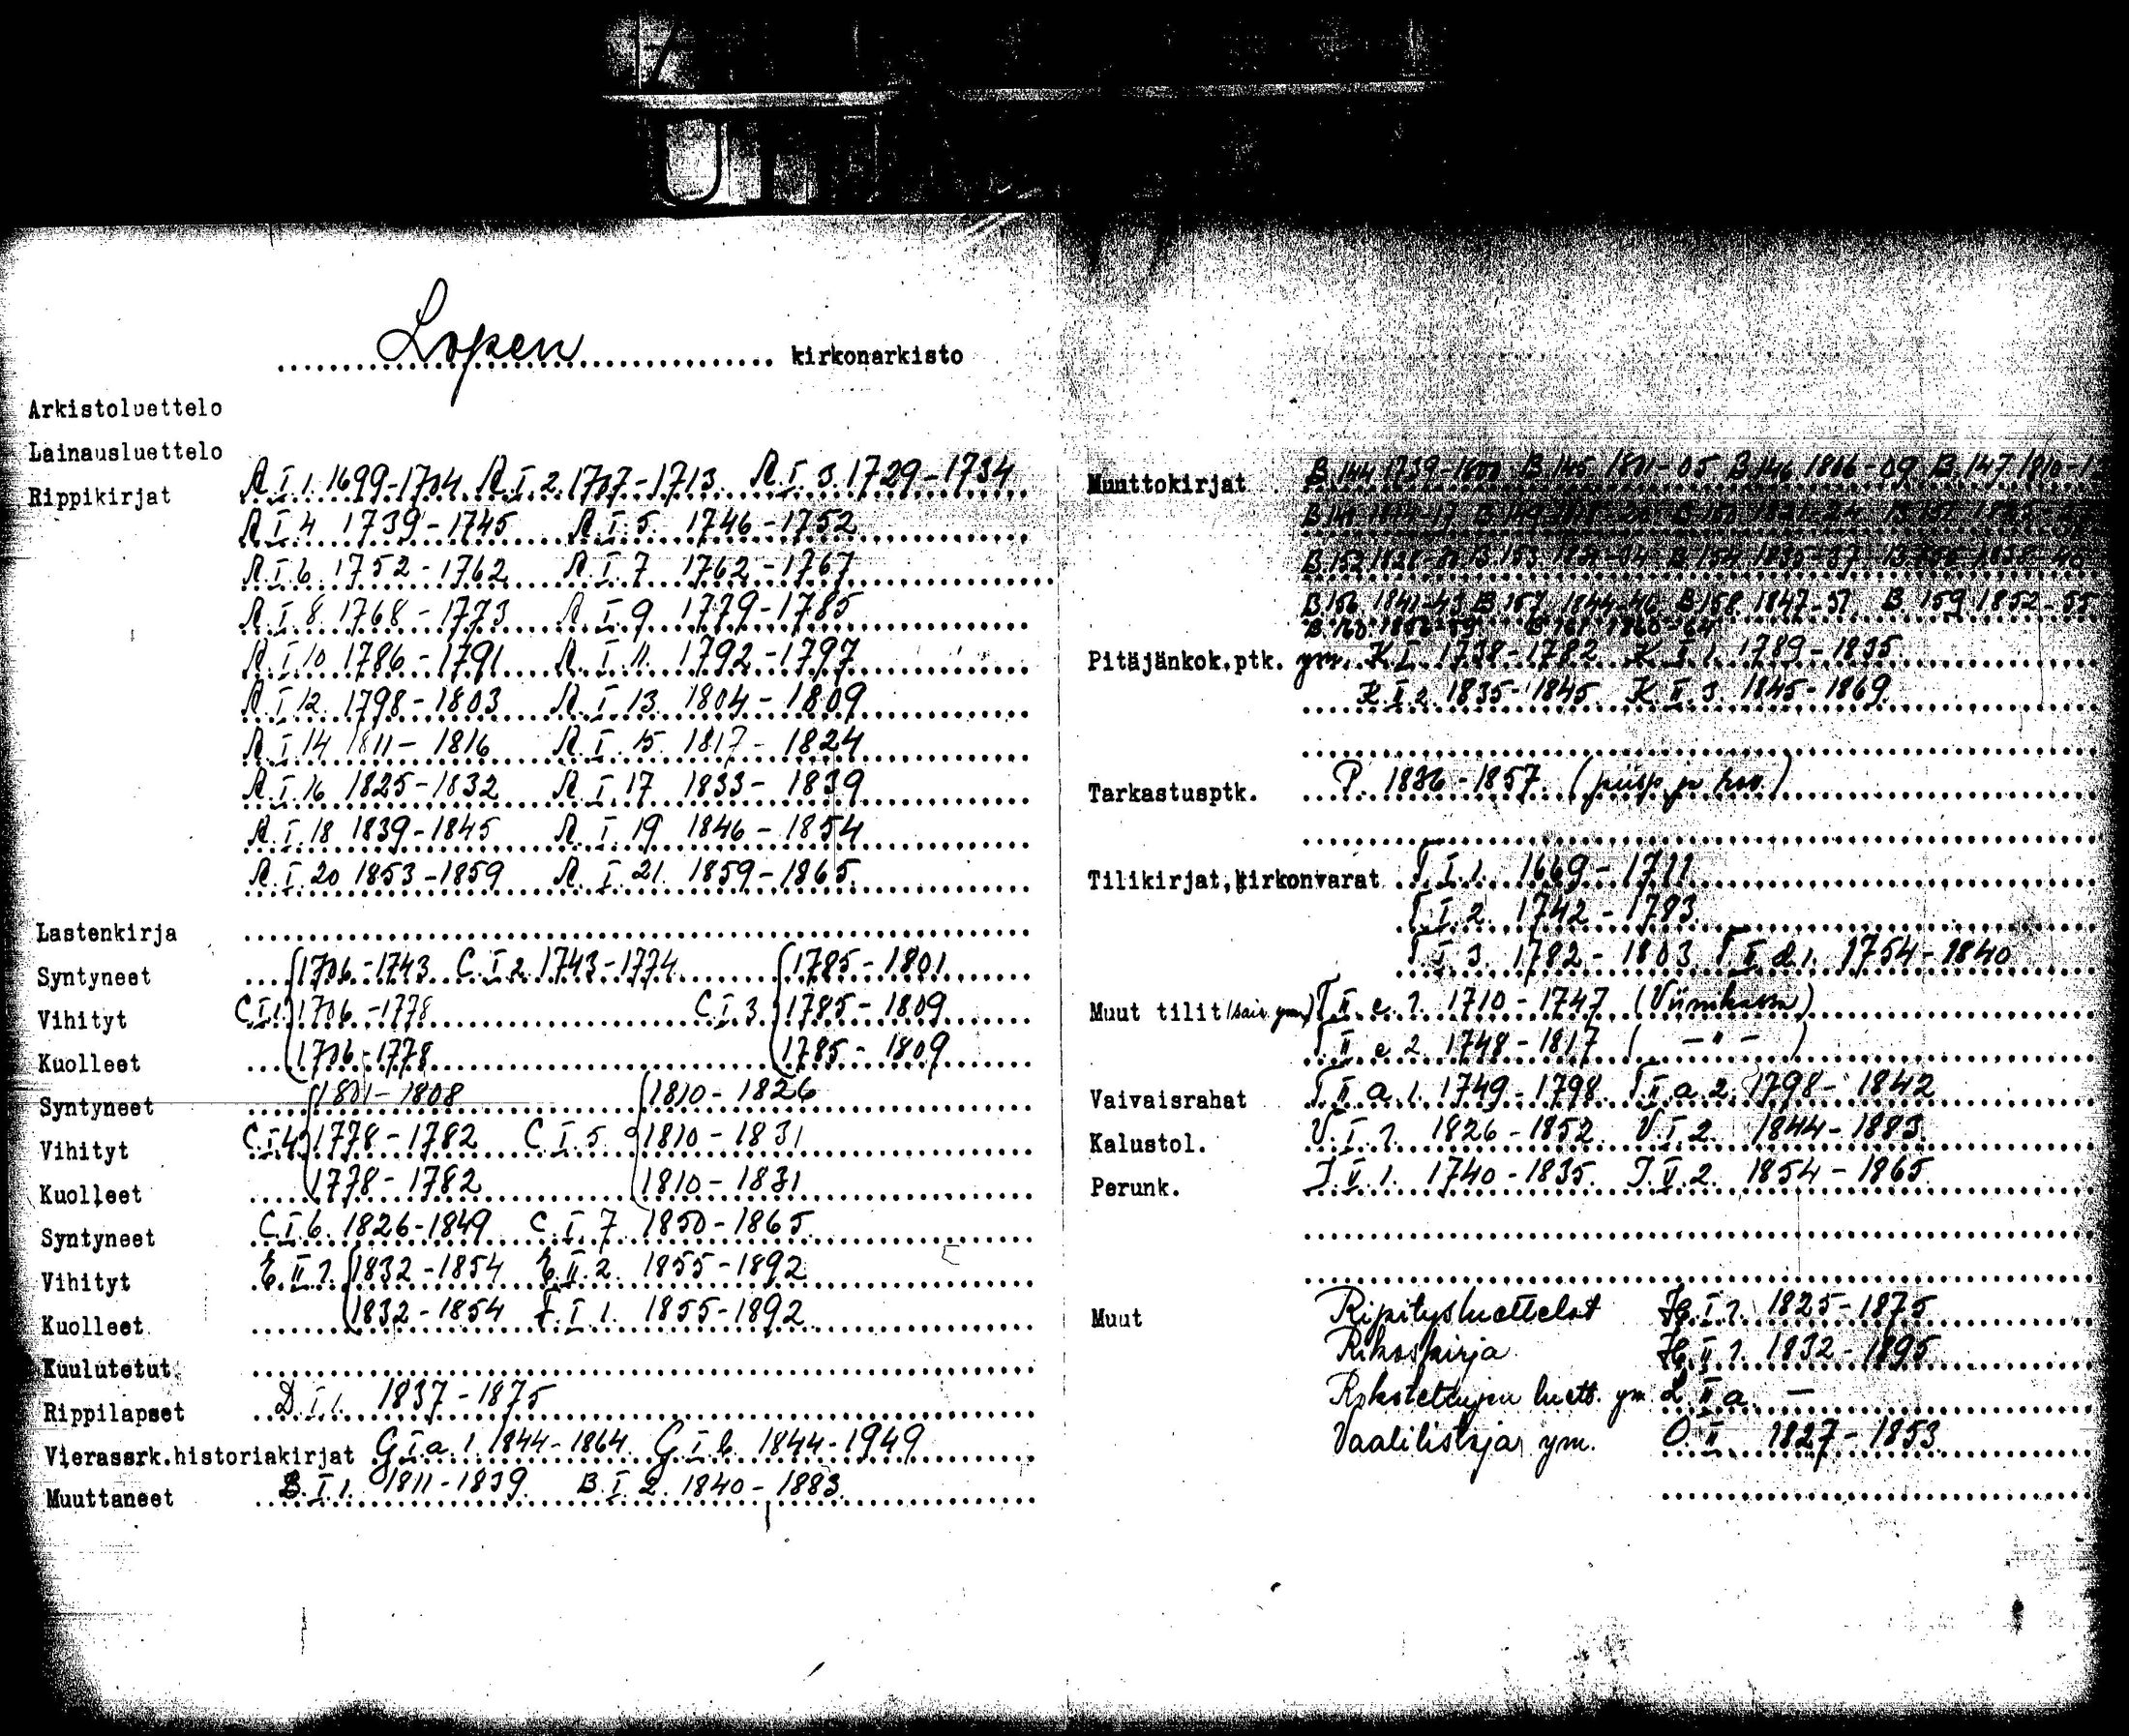 Lopen kirkonarkisto
Arkistoluettelo
Lainausluettelo
Rippikirjat A.I.1. 1699-1704 A.I.2. 1707-1713. A.I.3. 1729-1734
A.I.4 1739-1745 A.I.5. 1746-1752
A.I.6. 1752-1762 A.I.7 1762-1767
A.I.8. 1768-1773 A.I.9 1779-1785
A.I.10 1786-1791 A.I.11. 1792-1797
A.I.12. 1798-1803 A.I.13. 1804-1809
A.I.14 1811-1816 A.I.15. 1817-1824
A.I.16 1825-1832 A.I.17 1833-1839
A.I.18 1839-1845 A.I.19 1846-1854
A.I.20 1853-1859 A.I.21. 1859-1865.
Lastenkirja
Syntyneet 1706-1743 C.I.2. 1743-1774 1785-1801
Vihityt C.I.1. 1706-1778 C.I.3. 1785-1809
Kuolleet 1706-1778 1785-1809
Syntyneet 1801-1808 1810-1826
Vihityt C.I.4. 1778-1782 C.I.5. 1810-1831
Kuolleet 1778-1782 1810-1831
Syntyneet C.I.6. 1826-1849 C.I.7. 1850-1865.
Vihityt E.II.1. 1832-1854 E.II.2. 1855-1892
Kuolleet 1832-1854 F.I.1. 1855-1892
Kuulutetut
Rippilapset D.I.1. 1837-1875
Vierassrk.historiakirjat G.I.a.1. 1844-1864. G.I.b. 1844-1949
Muuttaneet B.I.1. 1811-1839. B.I.2. 1840-1883.
Muuttokirjat B 144 1739-1800 B 145 1801-05 B 146 1806-09 B 147 1810-
B 156 1841-43 B 157 1844-46 B 158 1847-51 B 159 1852-55
Pitäjänkok.ptk. ym. K.I. 1738-1782 K.II.1. 1789-1835
K.II.2. 1835-1845 K.II.3. 1845-1869.
Tarkastusptk. P. 1836-1857 (piisp. ja rov.)
Tilikirjat, kirkonvarat T.I.1. 1669-1711
T.I.2. 1742-1783.
T.I.3. 1782-1803. T.II.d.1. 1754-1840
Muut tilit T.II.e.1. 1710-1747
T.II.e.2. 1748-1817 ( -"- )
Vaivaisrahat T.II.a.1. 1749-1798. T.II.a.2. 1798-1842
Kalustol. V.I.1. 1826-1852. V.I.2. 1844-1883.
Perunk. J.II.1. 1740-1835. J.II.2. 1854-1865.
Muut Ripitysluettelot H.I.1. 1825-1875
Rikoskirja H.II.1. 1832-1895
Rokotettujen luett. ym. L.II.a. -
Vaalilistoja ym. O.II. 1827-1853